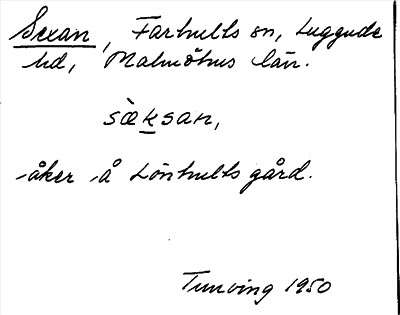 Sexan, Farhults sn, Luggude
hd, Malmöhus län.
sæksan,
åker å Lönhults gård.
Tunving 1950